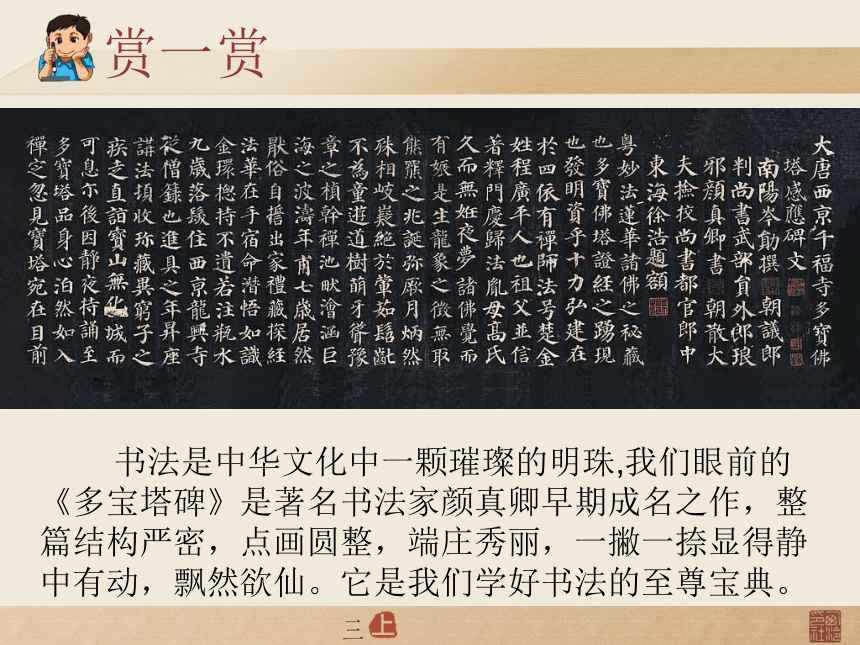 赏一赏
大唐西京千福寺多寶佛
塔感應碑文
南陽岑勛撰 朝議郎
判尚書武部員外郎琅
邪顏真卿書 朝散大
夫撿挍尚書都官郎中
東海徐浩題額
粵妙法蓮華諸佛之秘藏
也多寶佛塔證經之踴現
也發明資乎十力弘建在
於四依有禪師法号楚金
姓程廣平人也祖父並信
著釋門慶歸法胤母高氏
久而無姙夜夢諸佛覺而
有娠是生龍象之徵無取
熊羆之兆誕弥厥月炳然
殊相岐嶷絕於葷茹髫齔
不為童遊道樹萌牙聳豫
章之楨幹禪池畎澮涵巨
海之波濤年甫七歲居然
猒俗自誓出家禮藏探經
法華在手宿命潛悟如識
金環揔持不遺若注瓶水
九歲落髮住西京龍興寺
從僧籙也進具之年昇座
講法頓收珎藏異窮子之
疾走直詣寶山無化城而
可息尒後因靜夜持誦至
多寶塔品身心泊然如入
禪定忽見寶塔宛在目前
书法是中华文化中一颗璀璨的明珠,我们眼前的
《多宝塔碑》是著名书法家颜真卿早期成名之作，整
篇结构严密，点画圆整，端庄秀丽，一撇一捺显得静
中有动，飘然欲仙。它是我们学好书法的至尊宝典。
三上